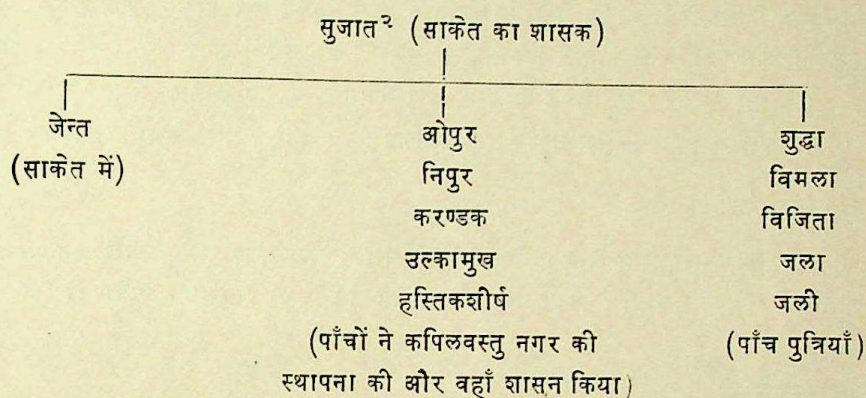 सुजात² (साकेत का शासक)
जेन्त
(साकेत में)
ओपुर
निपुर
करण्डक
उल्कामुख
हस्तिकशीर्ष
(पाँचों ने कपिलवस्तु नगर की
स्थापना की और वहाँ शासन किया)
शुद्धा
विमला
विजिता
जला
जली
(पाँच पुत्रियाँ)